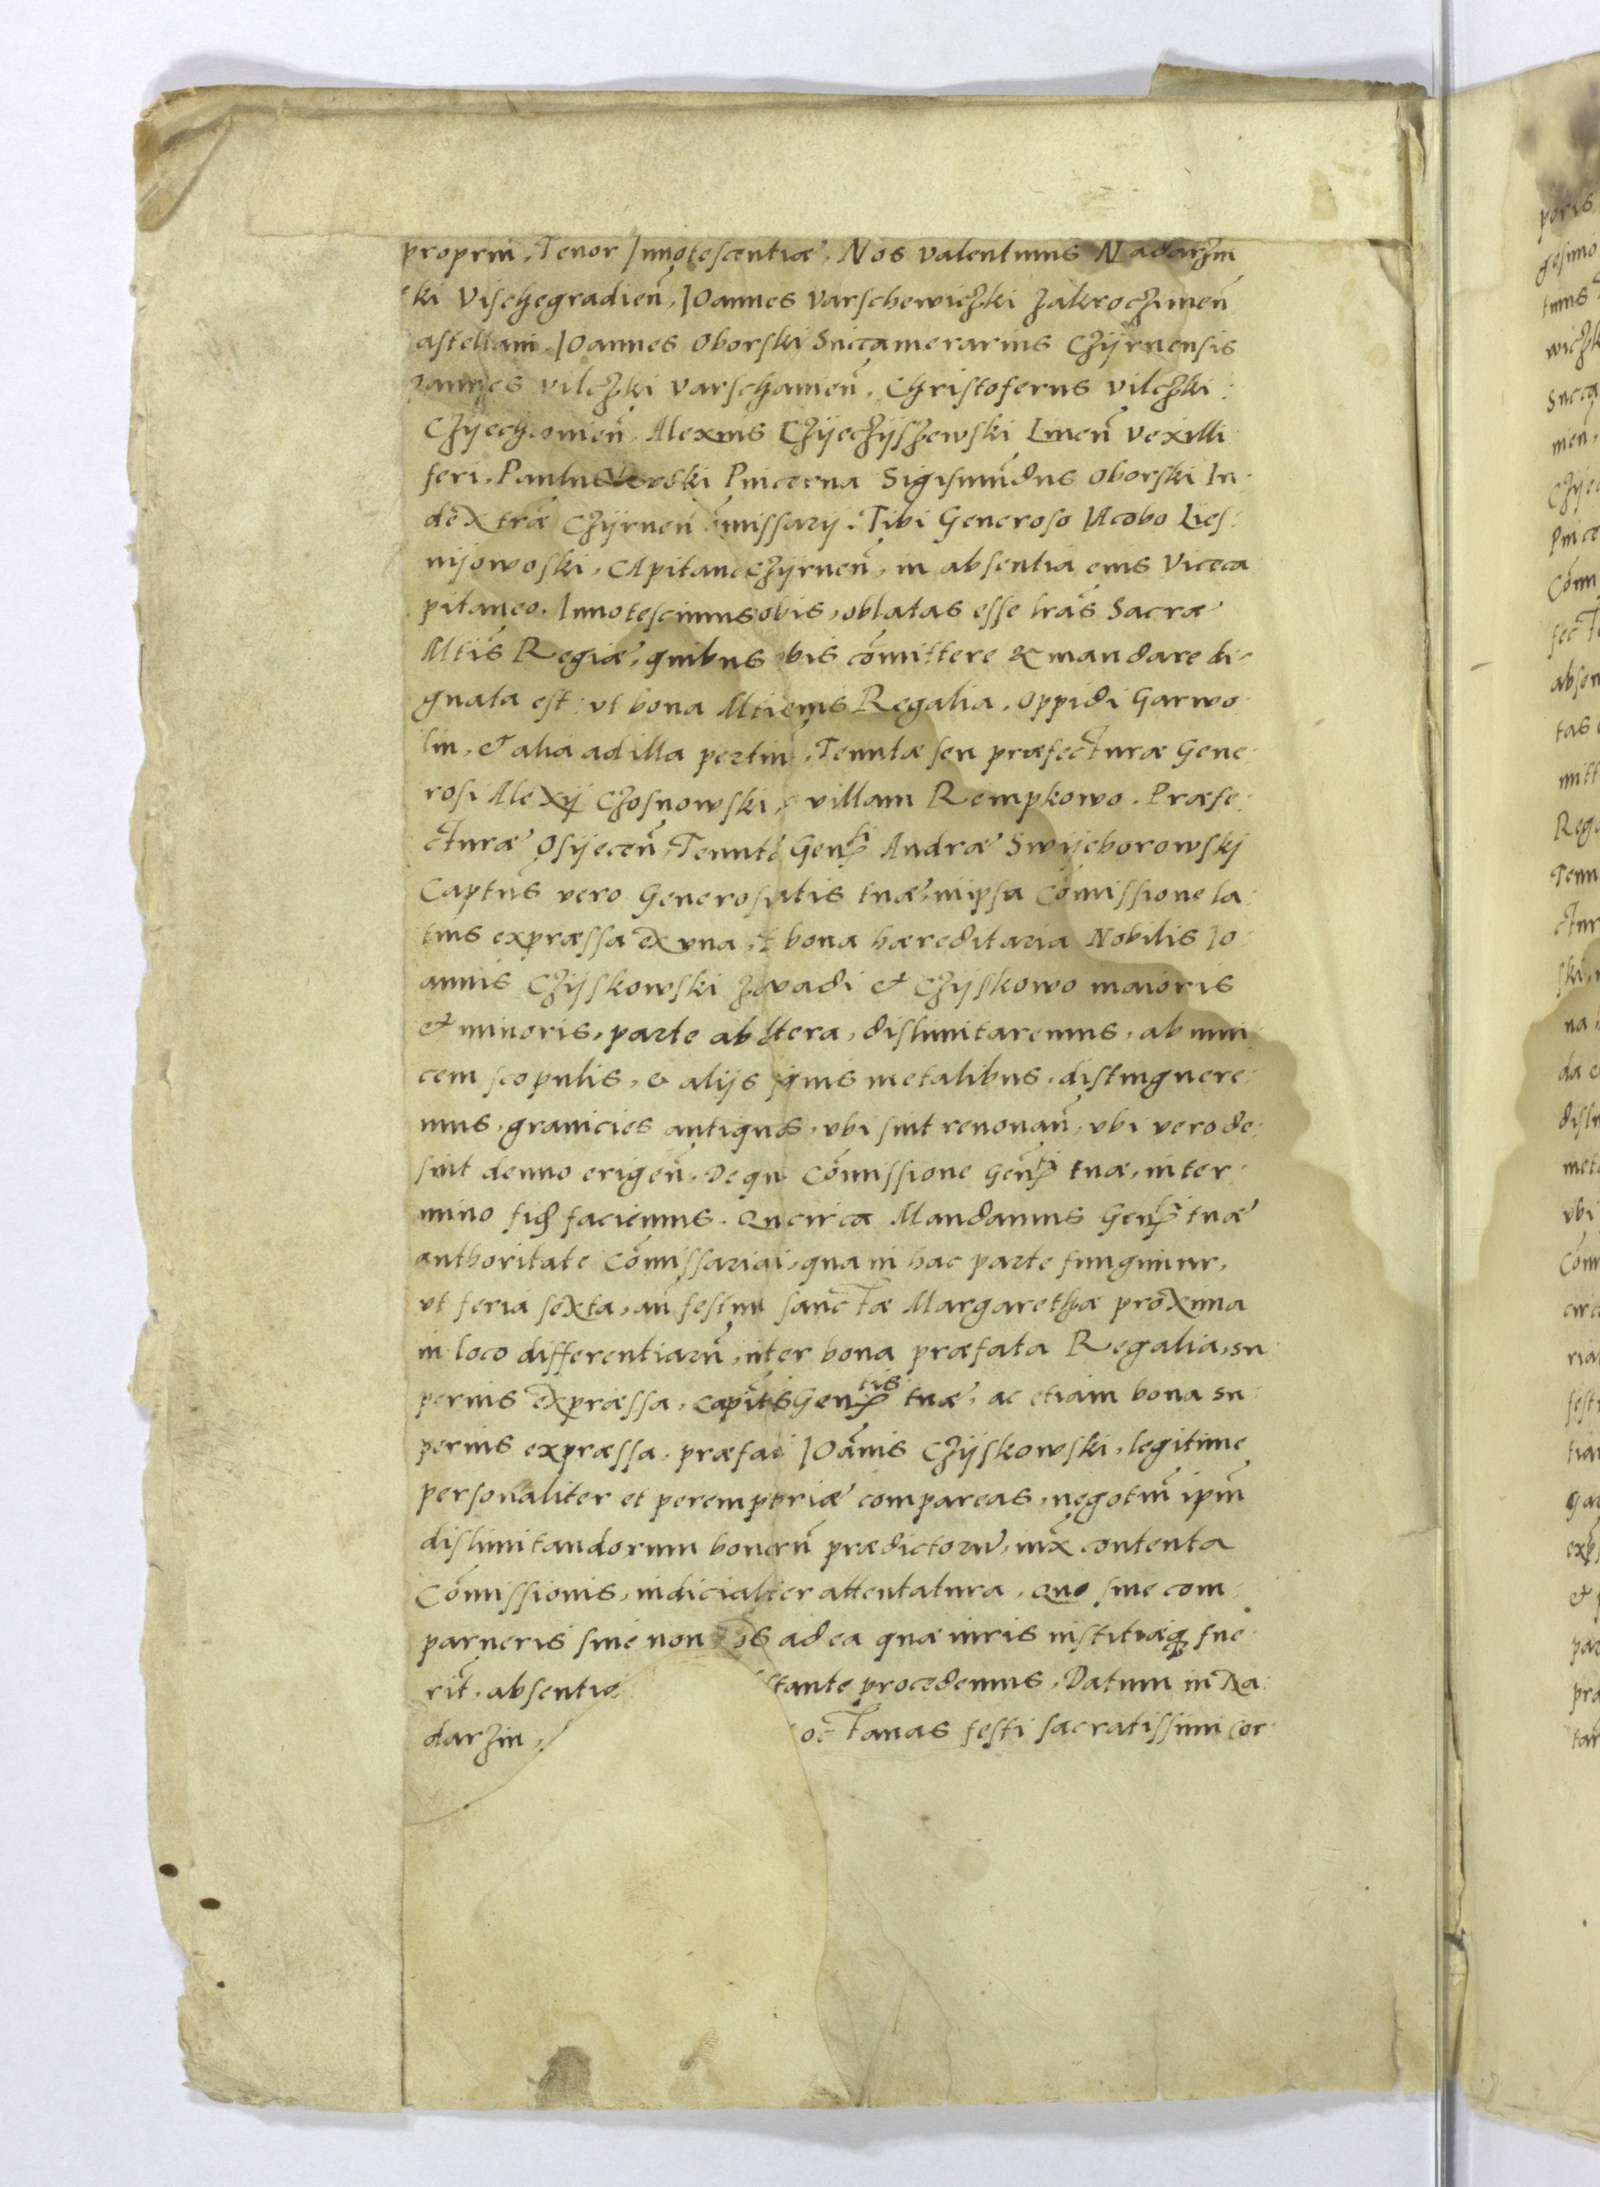 proprin, Tenor Innotescentiæ, Nos Valentinus Nadarzin
ki Vischegradien̄, Ioannes Varschewiczki Zakrocziinen̄
astellani, Ioannes Oborski Succamerarius Czijrnensis
oannes Vilczki Varschauien̄, Christoferus Vilczki:
Czijechonien̄, Alexius Czijechijszewski Liuen̄ Vexilli
feri, Paulus Pincerna Sigismūdus Oborski Iu
dex træ Czijrnen̄ omissarij. Tibi Generoso Iacobo Lies:
nijowoski, Capitane Czijrnen̄, in absentia eius Viceca
pitaneo. Innotescimus obis, oblatas esse lr̄as Sacræ
Mtis Regiæ, quibus bis com̄ittere & mandare di-
gnata est: vt bona Mti eius Regalia, Oppidi Garwo
lin, & alia ad illa pertin̄, Tenutæ seu præfecturæ Gene:
rosi Alexij Chosnowski, villam Rempkowo. Præfe:
cturæ Osijecen̄, Tenut Gen Andræ Swijeborowskj
Captus vero Generositatis tuæ, in ipsa Com̄issione la:
tius expræssa ex una, t bona hæreditaria Nobilis Io:
annis Czijskowski Zavadi & Czijskowo maioris
& minoris, parte ab altera, dislimitaremus, ab inui
cem scopulis, & alijs signis metalibus, distinguere:
mus, granicies antiquas, vbi sint renouan̄, vbi vero de:
sint denuo erigen̄. De qu Com̄issione Gen tuæ, in ter:
mino fid faciemus. Qucirca Mandamus Gen tuæ
authoritate Com̄issariai, qua in hac parte fungimur,
vt feria sexta, an̄ festum sanctæ Margarethæ proxima
in loco differentiarū, inter bona præfata Regalia, su
perius expræssa, Capit̄s Gentis tuæ, ac etiam bona su:
perius expræssa, præfai Ioānis Czijskowski, legitime
personaliter et peremptoriæ compareas, negotiū ipm̄
dislimitandorum bonorū prædictorū, iux contenta
Com̄issionis, iudicialiter attentatura, Quo siue com:
parueris siue non os ad ea quæ iuris iustitiæq fue
rit, absentia stante procedemus, Datum in Na:
darzin, octauas festi sacratissimi Cor